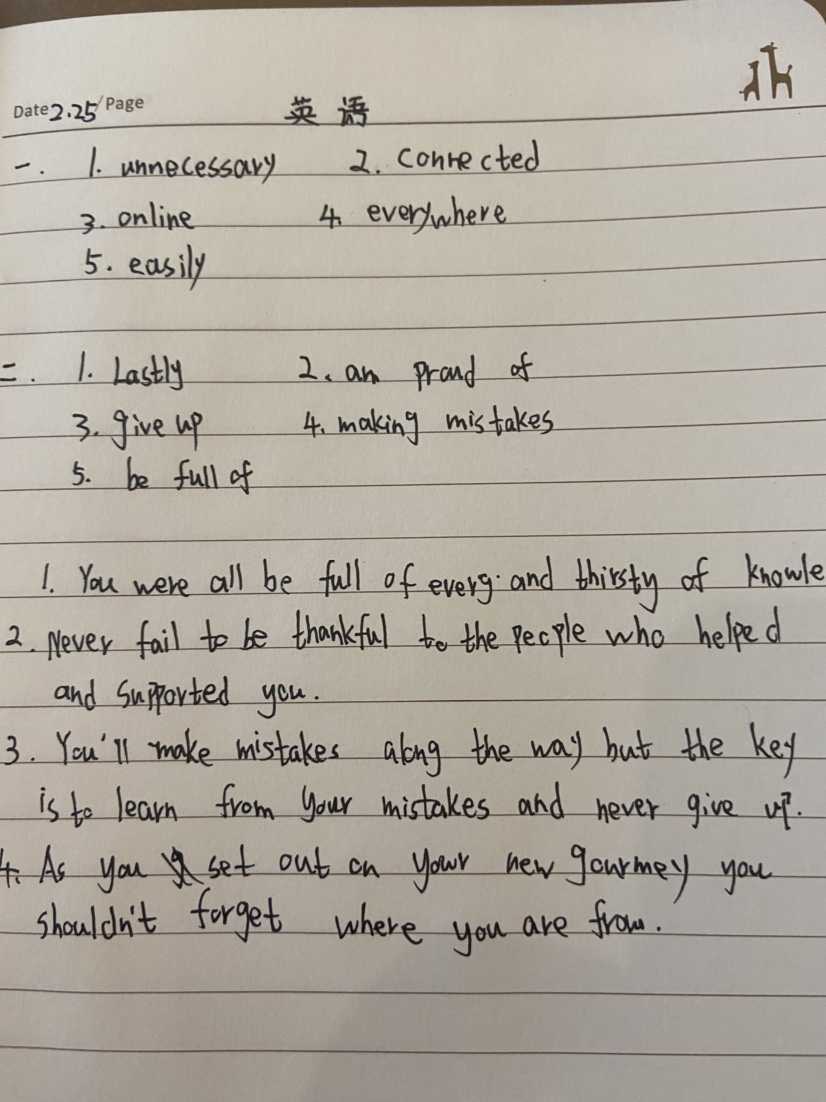 Date 2.25 / Page 英语
一. 1. unnecessary 2. connected
3. online 4. everywhere
5. easily
二. 1. Lastly 2. am proud of
3. give up 4. making mistakes
5. be full of
1. You were all be full of everg and thirsty of knowle
2. Never fail to be thankful to the people who helped
and supported you.
3. You'll make mistakes along the way but the key
is to learn from your mistakes and never give up.
4. As you set out on your new gourmey you
shouldn't forget where you are from.